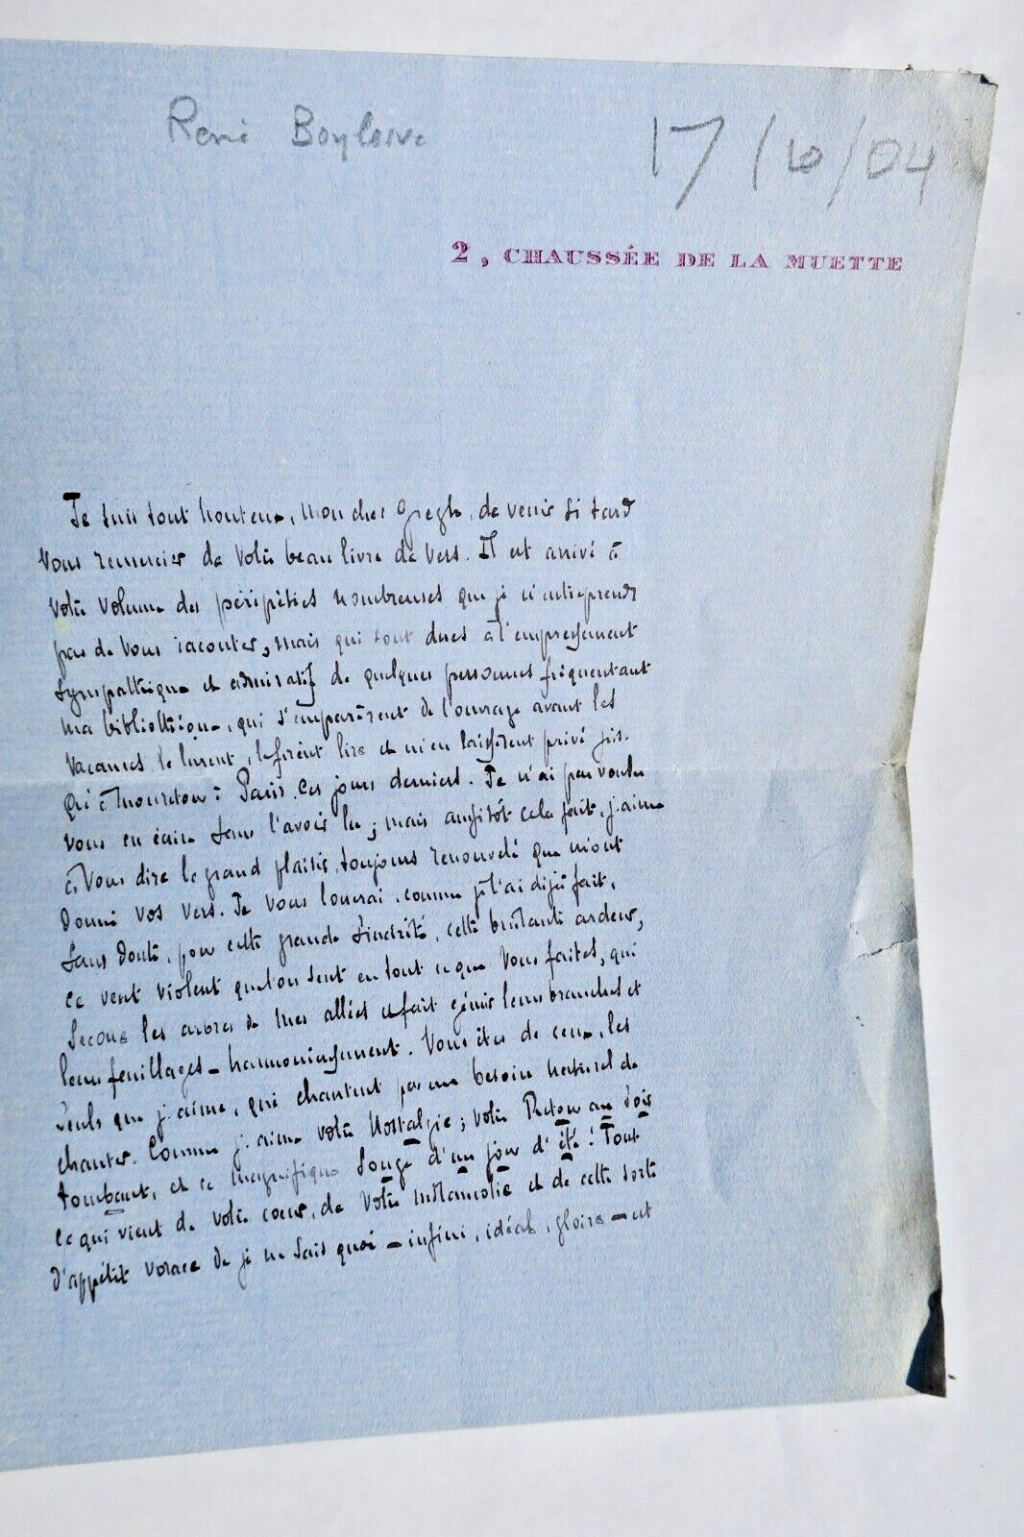 René Boylesve
17/10/04
2, CHAUSSÉE DE LA MUETTE
Je suis tout honteux, mon cher Gregh, de venir si tard
vous remercier de votre beau livre de vers. Il est arrivé à
votre volume des péripéties nombreuses que je n'entreprends
pas de vous raconter, mais qui sont dues à l'empressement
sympathique et admiratif de quelques personnes fréquentant
ma bibliothèque, qui s'emparèrent de l'ouvrage avant les
vacances, le lurent, le firent lire et m'en laissèrent privé jus-
qu'à mon retour à Paris, ces jours derniers. Je n'ai pas voulu
vous en écrire sans l'avoir lu ; mais aussitôt cela fait, j'aime
à vous dire le grand plaisir, toujours renouvelé que m'ont
donné vos vers. Je vous louerai, comme je l'ai déjà fait,
sans doute, pour cette grande sincérité, cette brûlante ardeur,
ce vent violent que l'on sent en tout ce que vous faites, qui
secoue les arbres de mes allées et fait gémir leurs branches et
leurs feuillages – harmonieusement. Vous êtes de ceux, les
seuls que j'aime, qui chantent par un besoin naturel de
chanter. Comme j'aime votre Nostalgie ; votre Retour au soir
tombant, et ce magnifique Songe d'un jour d'été ! Tout
ce qui vient de votre cœur, de votre mélancolie et de cette sorte
d'appétit vorace de je ne sais quoi – infini, idéal, gloire – est